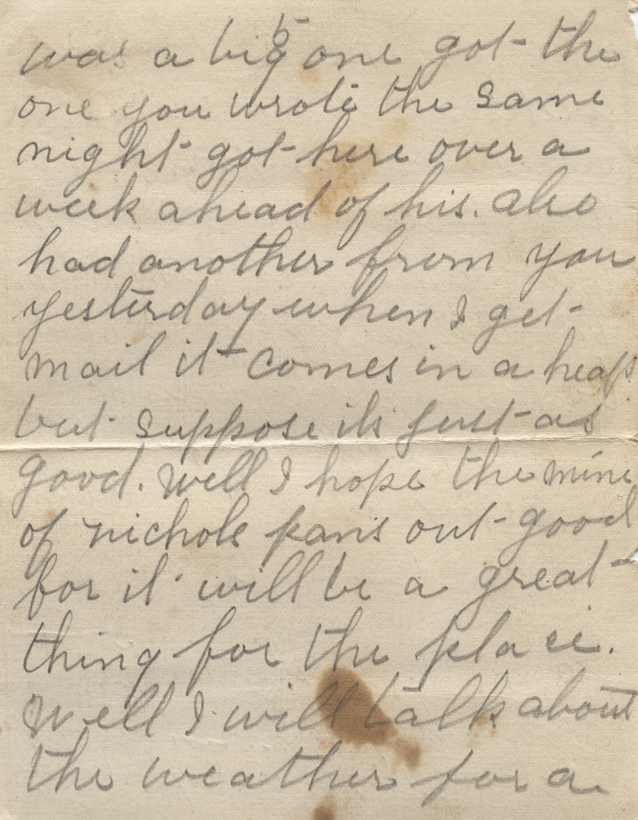 5
was a big one got the
one you wrote the same
night got here over a
week ahead of his. also
had another from you
yesterday when I get
mail it comes in a heap
but suppose its just as
good. Well I hope the mine
of nichols pans out good
for it will be a great
thing for the place.
Well I will talk about
the weather for a